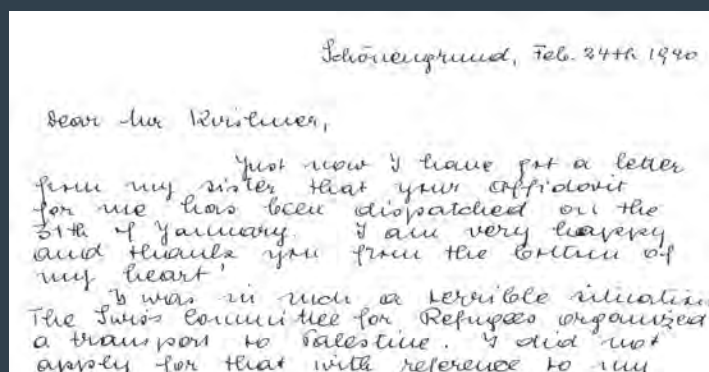 Schönengrund, Feb. 24th 1940
Dear Mr
Just now I have got a letter
from my sister that your affidavit
for me has been dispatched on the
31th of January. I am very happy
and thank you from the bottom of
my heart!
I was in such a terrible situation.
The Swiss Committee for Refugees organized
a transport to Palestine. I did not
apply for that with reference to my